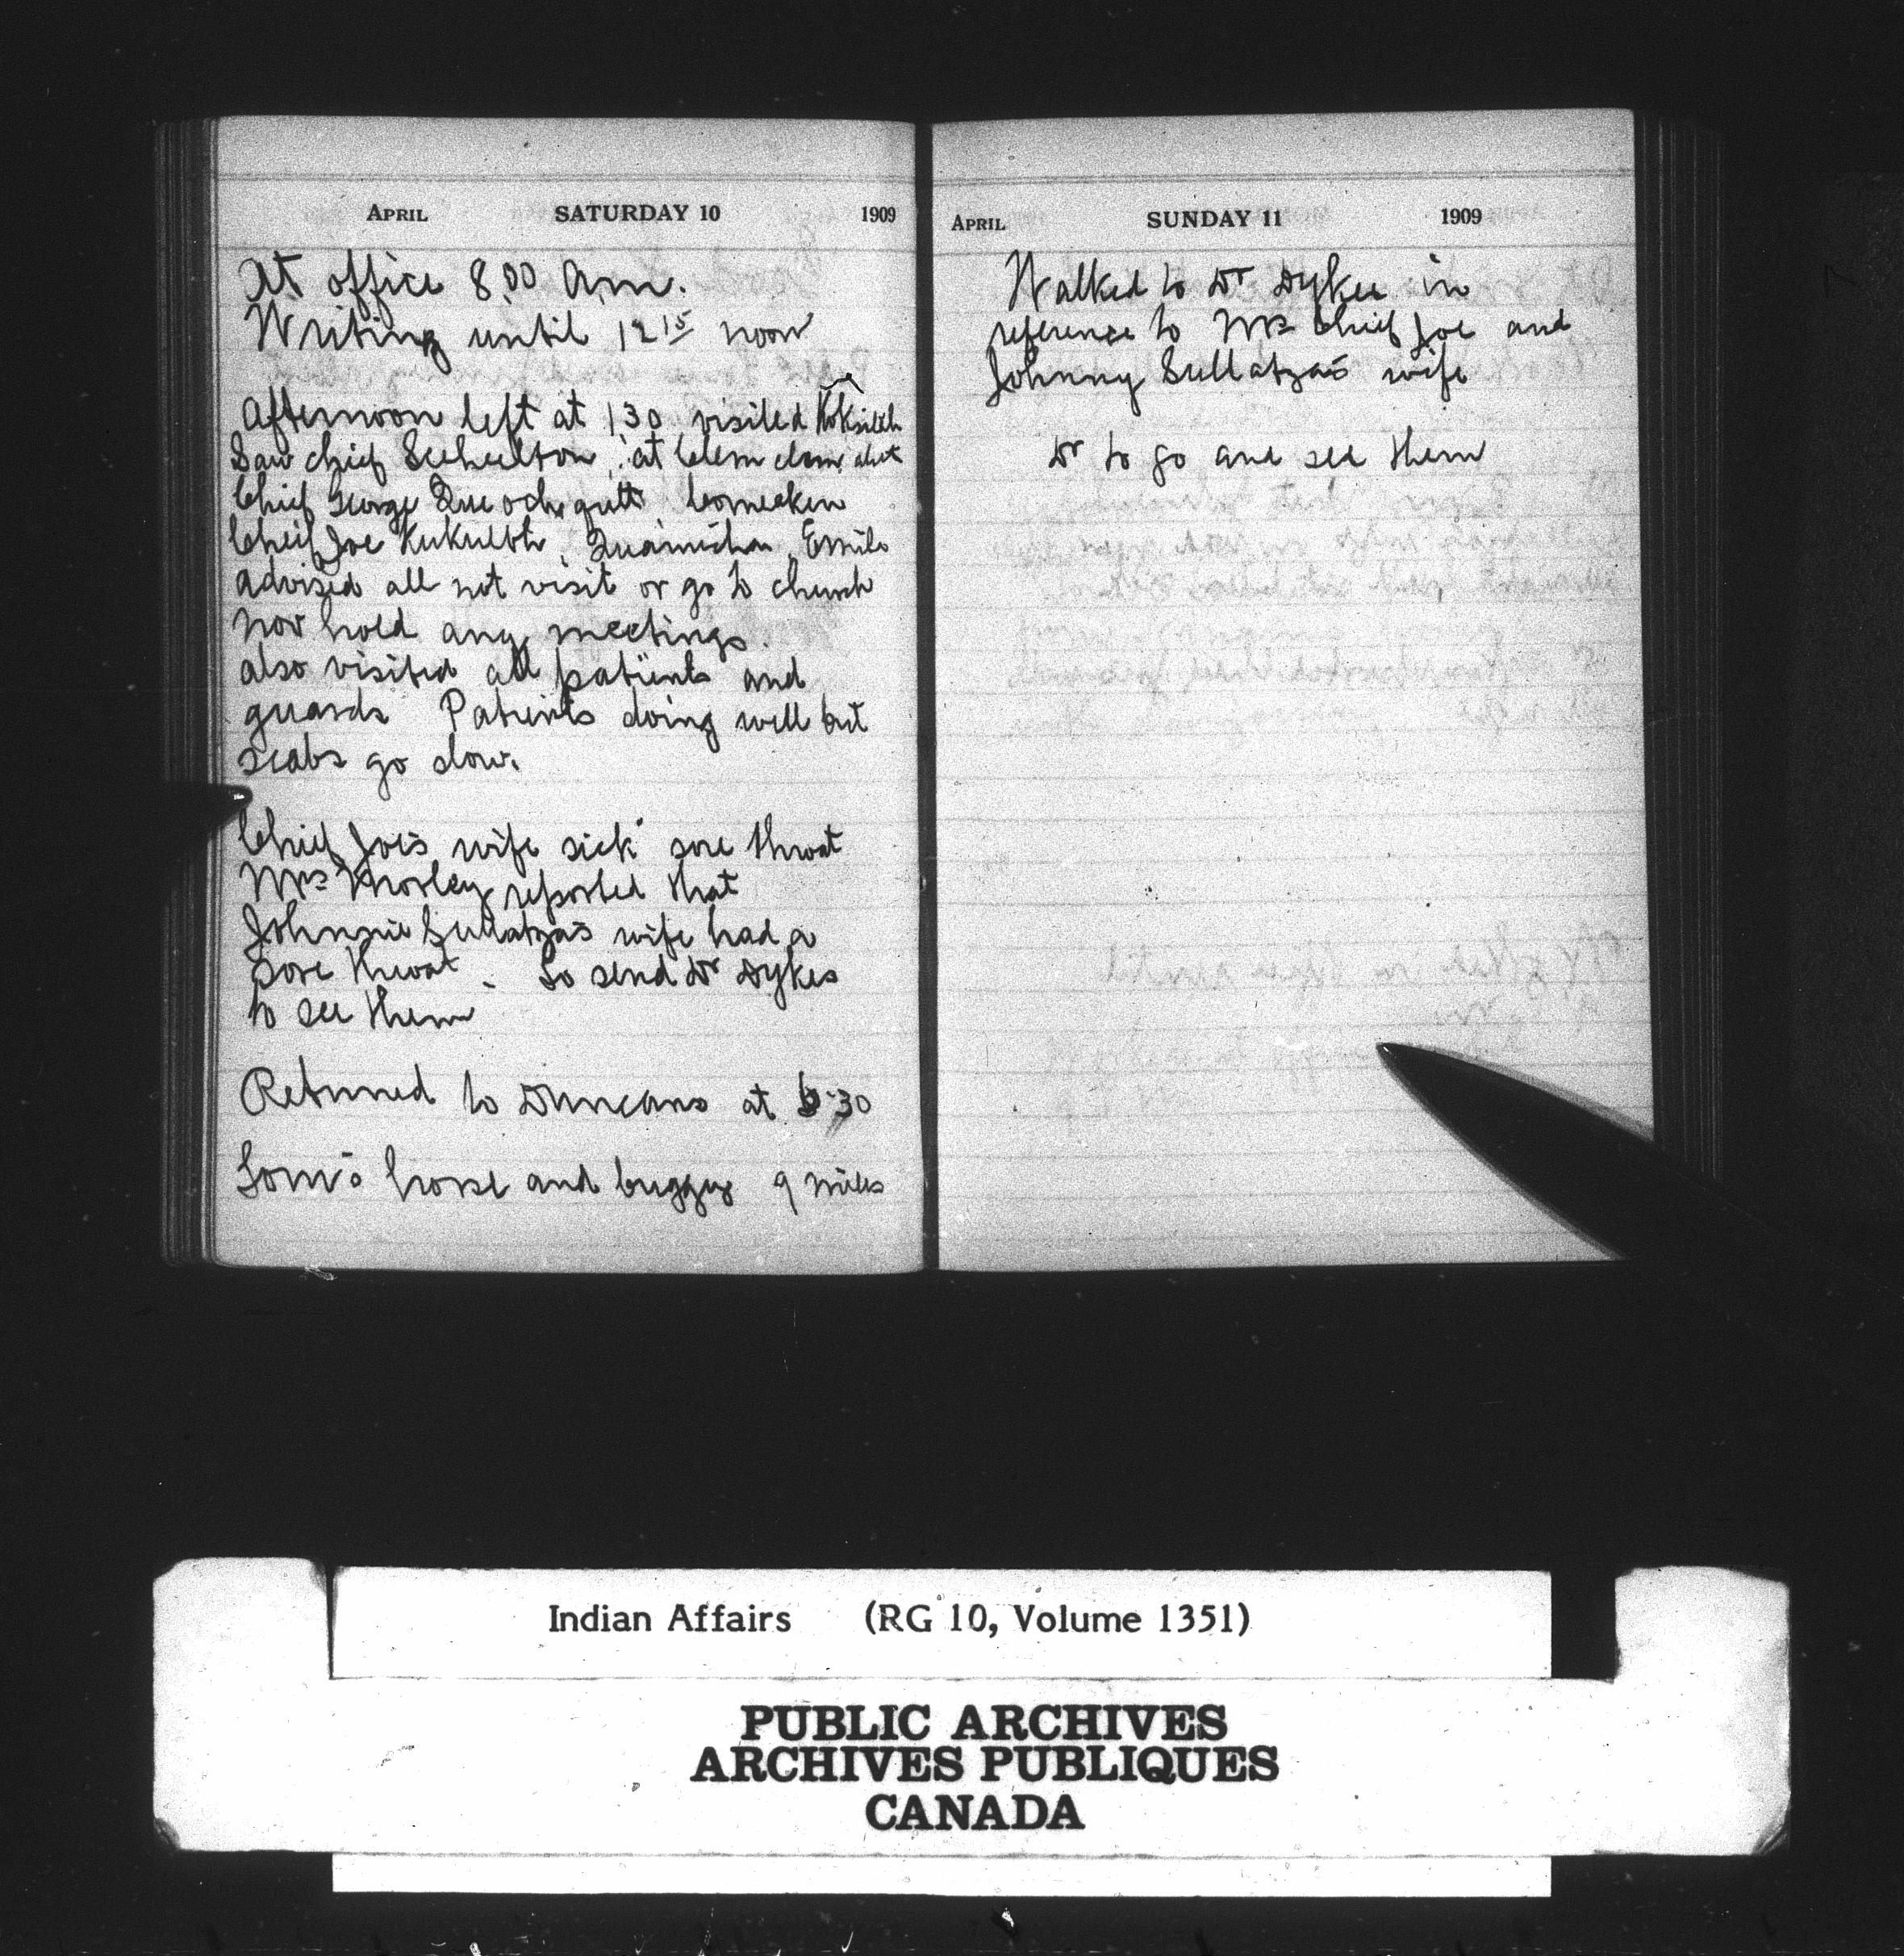 APRIL SATURDAY 10 1909
At office 8.00 a.m.
Writing until 12 15 noon
Afternoon left at 1 30 visited Koksilah
Saw chief at Clem clem
Chief George Comeeken
Chief Joe Kukulth Quamichan Emile
advised all not visit or go to church
nor hold any meetings.
also visited all patients and
guards Patients doing well but
scabs go slow.
Chief Joe's wife sick sore throat
Mrs reported that
Johnnie Sullatza's wife had a
sore throat. So send Dr Dykes
to see them
Returned to Duncans at 30
Tom's horse and buggy 9 miles
APRIL SUNDAY 11 1909
Walked to Dr Dykes in
reference to Mrs Chief Joe and
Johnny Sullatza's wife
Dr to go and see them
Indian Affairs (RG 10, Volume 1351)
PUBLIC ARCHIVES
ARCHIVES PUBLIQUES
CANADA